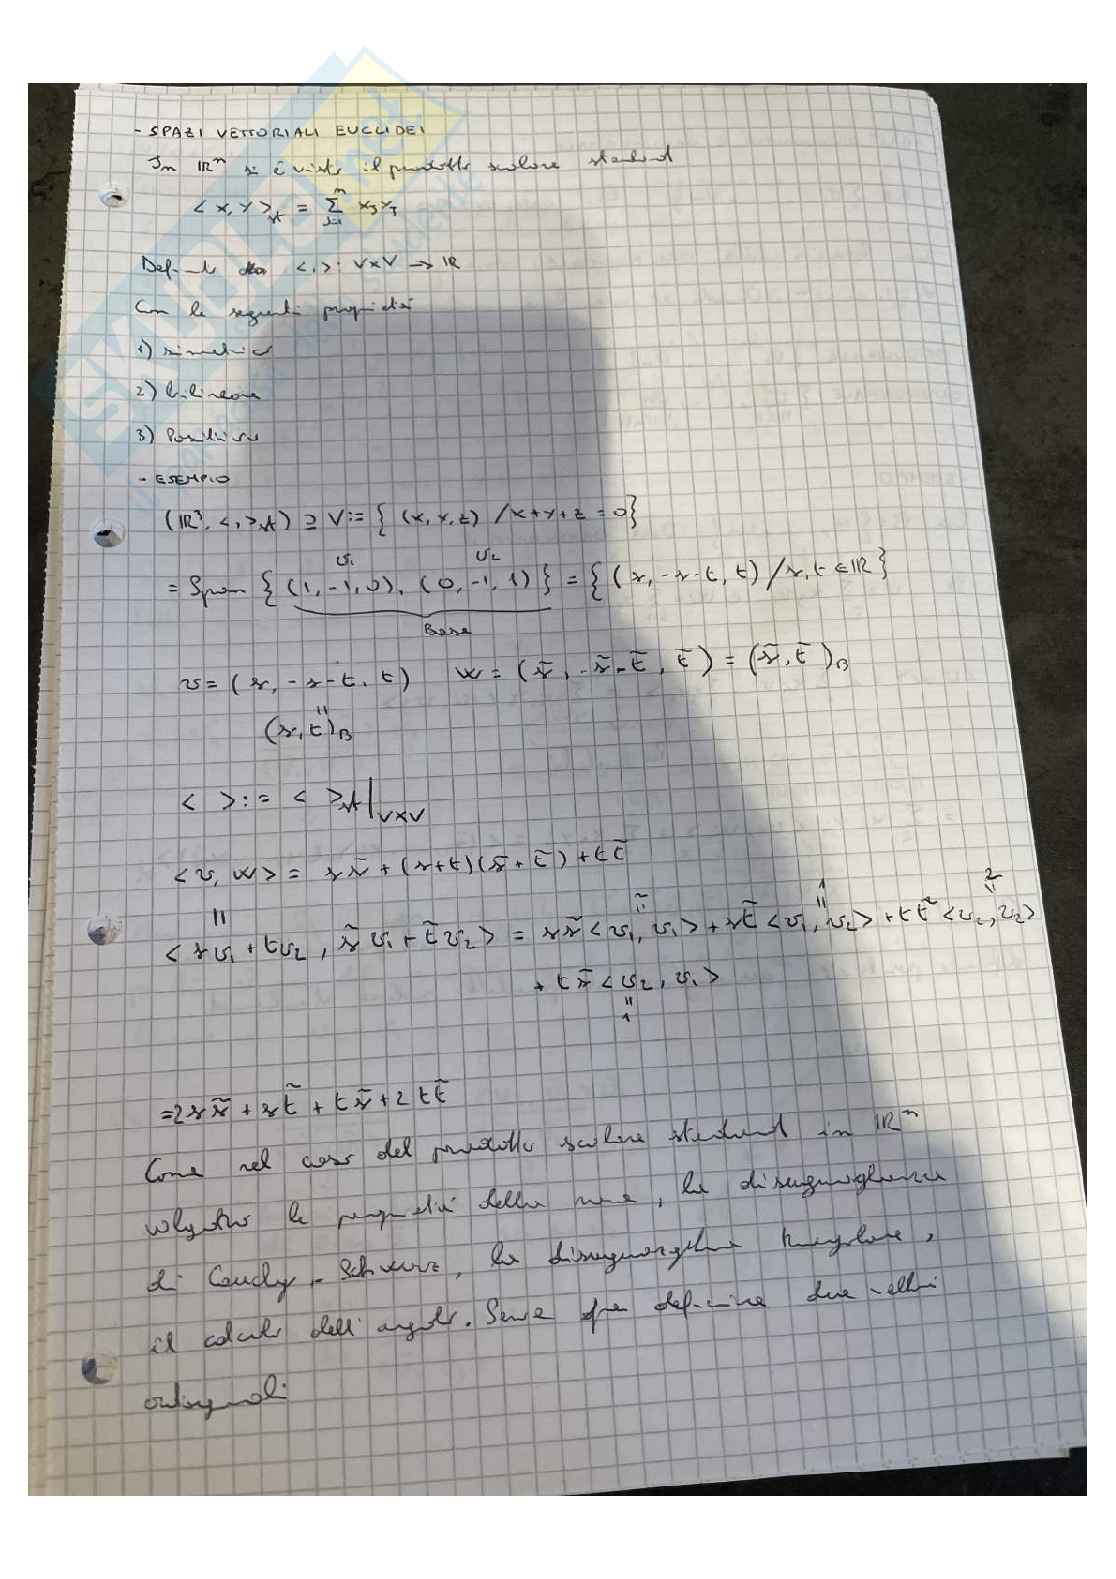 - SPAZI VETTORIALI EUCLIDEI
In ℝⁿ si è visto il prodotto scalare standard
< x, y >st = Σⁿj=1 xj yj
Definito da <,>: V×V → ℝ
Con le seguenti proprietà
1) simmetrico
2) bilineare
3) Positivo
- ESEMPIO
(ℝ³, <,>st) ⊇ V := { (x, y, z) / x+y+z = 0}
v₁ v₂
= Span { (1, -1, 0), (0, -1, 1) } = { (s, -s-t, t) / s, t ∈ ℝ }
Base
v = (s, -s-t, t) w = (s̃, -s̃-t̃, t̃) = (s̃, t̃)B
(s, t)B
< > := < >st |V×V
< v, w > = s s̃ + (s+t)(s̃+t̃) + t t̃
2 1 2
< s v₁ + t v₂, s̃ v₁ + t̃ v₂ > = s s̃ < v₁, v₁ > + s t̃ < v₁, v₂ > + t t̃ < v₂, v₂ >
+ t s̃ < v₂, v₁ >
1
= 2 s s̃ + s t̃ + t s̃ + 2 t t̃
Come nel caso del prodotto scalare standard in ℝⁿ
valgono le proprietà della , la disuguaglianza
di Cauchy - Schwarz, la disuguaglianza triangolare,
il calcolo dell'angolo. Serve per definire due vettori
ortogonali